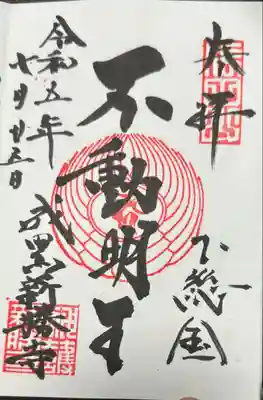 奉拝
下総国
不動明王
令和五年
十月廿三日
成田山新勝寺